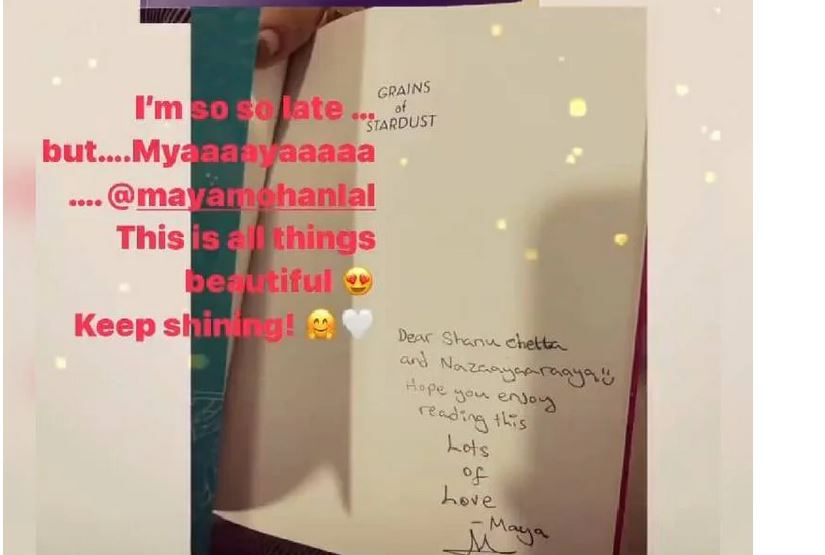 I'm so so late ...
but....Myaaaayaaaaa
....@mayamohanlal
This is all things
beautiful 😍
Keep shining! 🤗🤍
GRAINS
of
STARDUST
Dear Shanu chetta
and Nazaayaaraaya!!
Hope you enjoy
reading this
Lots
of
Love
- Maya